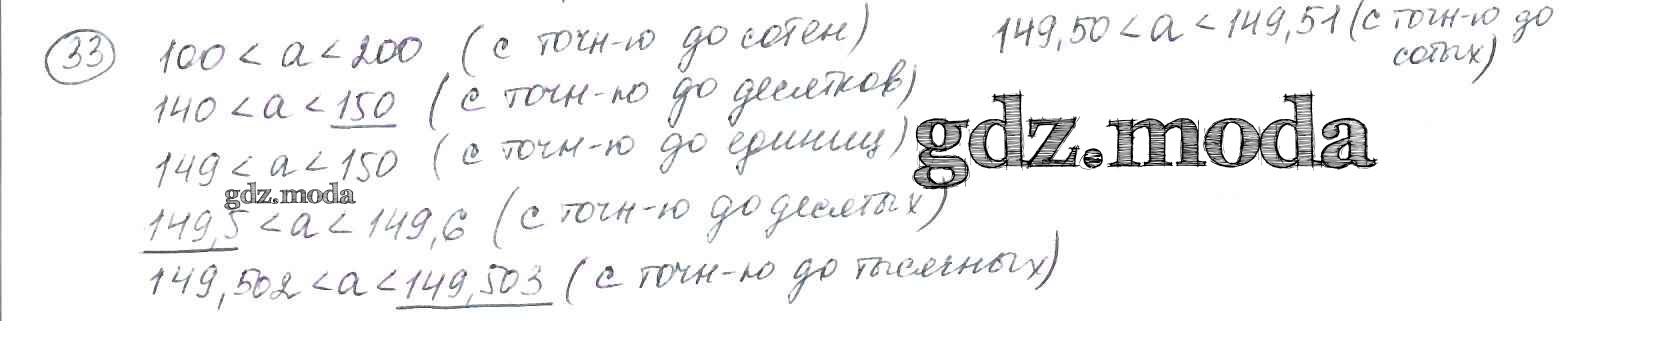 33 100 < a < 200 (с точн-ю до сотен)
149,50 < a < 149,51 (с точн-ю до
сотых)
140 < a < 150 (с точн-ю до десятков)
149 < a < 150 (с точн-ю до единиц)
gdz.moda
gdz.moda
149,5 < a < 149,6 (с точн-ю до десятых)
149,502 < a < 149,503 (с точн-ю до тысячных)